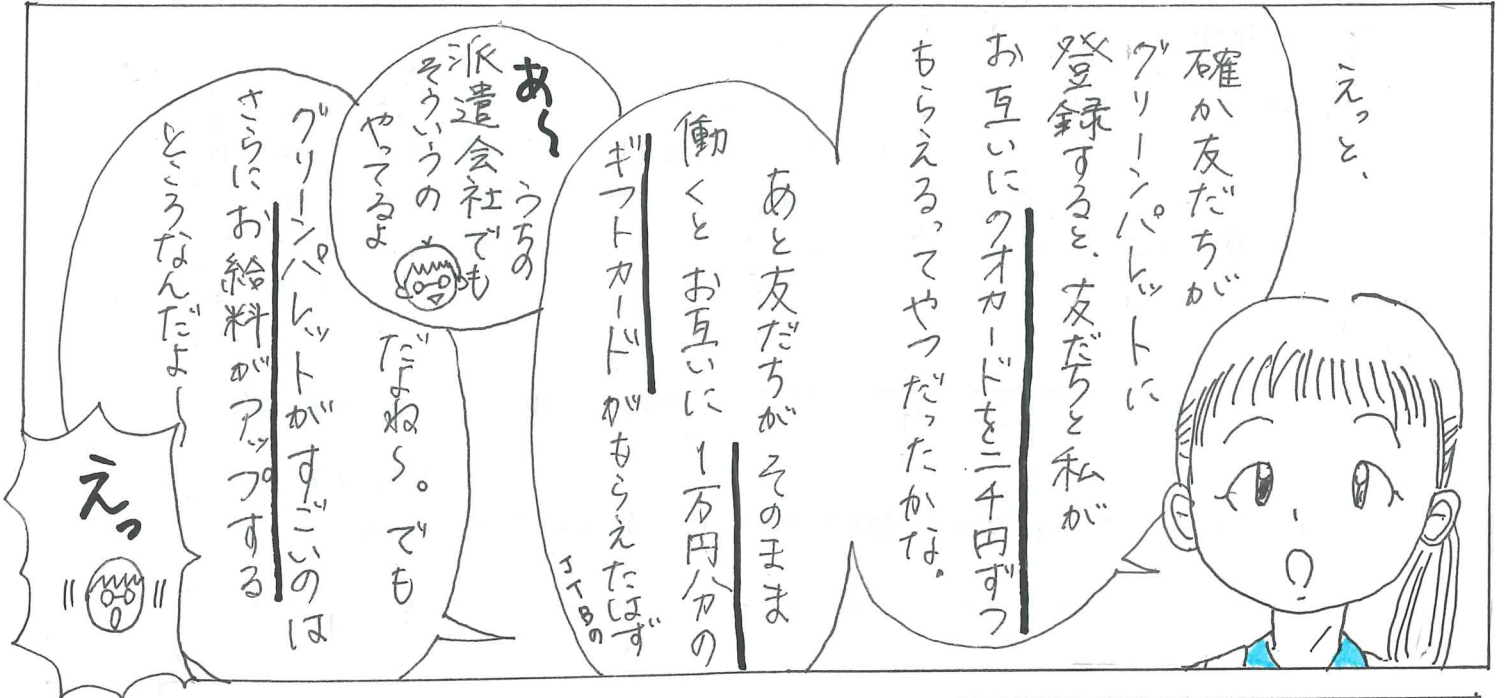 えっと、
確か友だちが
グリーンパレットに
登録すると、友だちと私が
お互いにクオカードを二千円ずつ
もらえるってやつだったかな。
あと友だちがそのまま
働くとお互いに1万円分の
JTBの
ギフトカードがもらえたはず
あ〜
うちの
派遣会社でも
そういうの
やってるよ
だよね〜。でも
グリーンパレットがすごいのは
さらにお給料がアップする
ところなんだよ〜
えっ